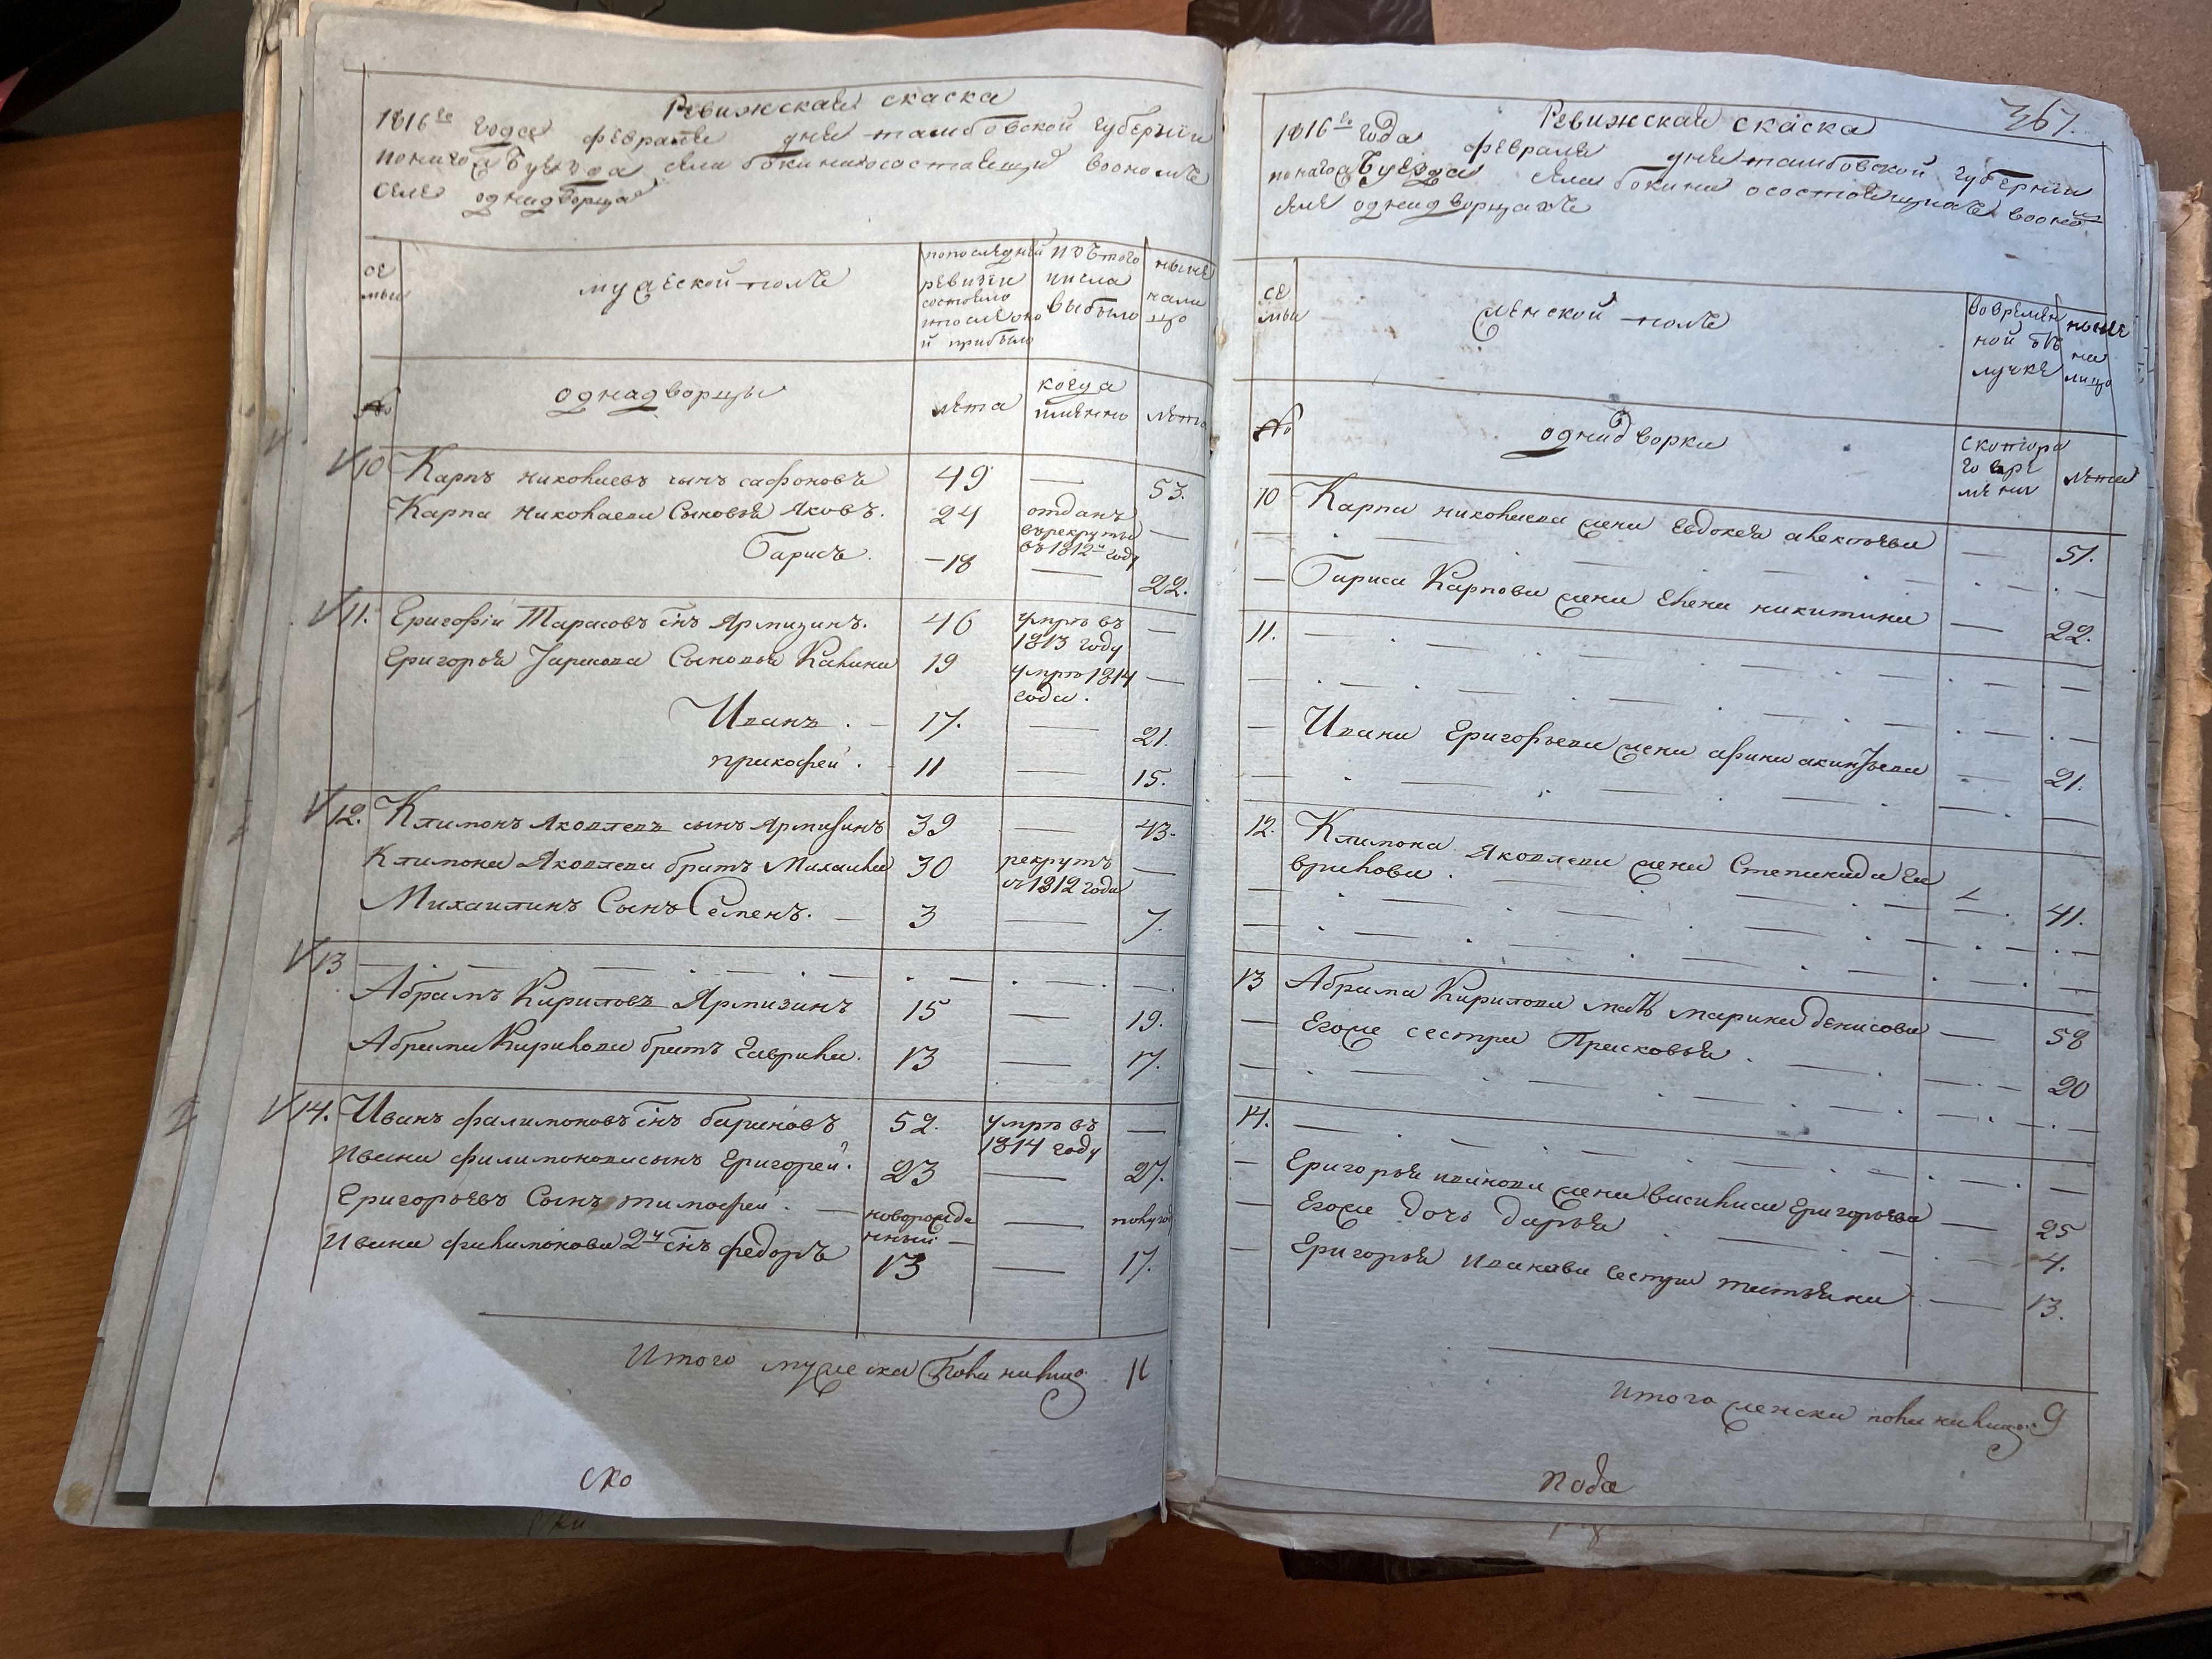 Ревижская скаска
1816го года февраля дня тамбовской губернии
села
селе однадворца
се
мьи
мужеской полъ
по последней
ревизеи
состояло
и после оно
й прибыло
изъ того
числа
выбыло
ныне
нали
цо
№
однадворцы
лѣта
когда
имянно
лѣта
10 Карпъ николаевъ сынъ сафоновъ 49 — 53.
Карпа николаева Сыновья Яковъ. 24 отданъ
в рекруты
въ 1812м году —
Барисъ. —18 — 22.
11. Григорїи Тарасовъ снъ Ярмизинъ. 46 умре въ
1813 году —
Григорья Тарасова Сыновья Калина 19 умре 1814
года. —
Иванъ. — 17. — 21.
прикофей. 11 — 15.
12. Климонъ Яковлевъ сынъ Ярмизинъ 39 — 43.
Климона Яковлева братъ Михаила 30 рекрутъ
с 1812 года —
Михаилинъ Сынъ Семенъ. — 3 — 7.
13
Абрамъ Кириловъ Ярмизинъ 15 — 19.
Абрама Кирилова братъ Гаврила. 13 — 17.
14. Иванъ филимоновъ снъ бариновъ 52. умре въ
1814 году —
Ивана филимонова сынъ Григорей. 23 — 27.
Григорьевъ Сынъ тимофей. — новорожде
нный — — полугод
Ивана филимонова 2й снъ федоръ 13 — 17.
Итого мужеска пола налицо 11
ско
367.
Ревижская скаска
1816го года февраля дня тамбовской губернии
села
селе однадворцахъ
се
мьи
женской полъ
во времян
ной от
лучке
ныне
на
лицо
№
однадворки
с котора
го вре
мени
лѣта
10 Карпа николаева жена Евдокея алексъева — 51.
— Бариса Карпова жена Елена никитина — 22.
11.
— Ивана Григорьева жена афима акинфьева — 21.
12. Климона Яковлева жена Степанида га
врилова. — 41.
13 Абрама Кирилова мать марина денисова — 58
— Егоже сестра Прасковья. 20
14.
— Григорья иванова жена василиса Григорьева — 25
— Егоже дочь дарья 4.
— Григорья иванова сестра татьяна — 13.
Итого женска пола налицо 9
пода